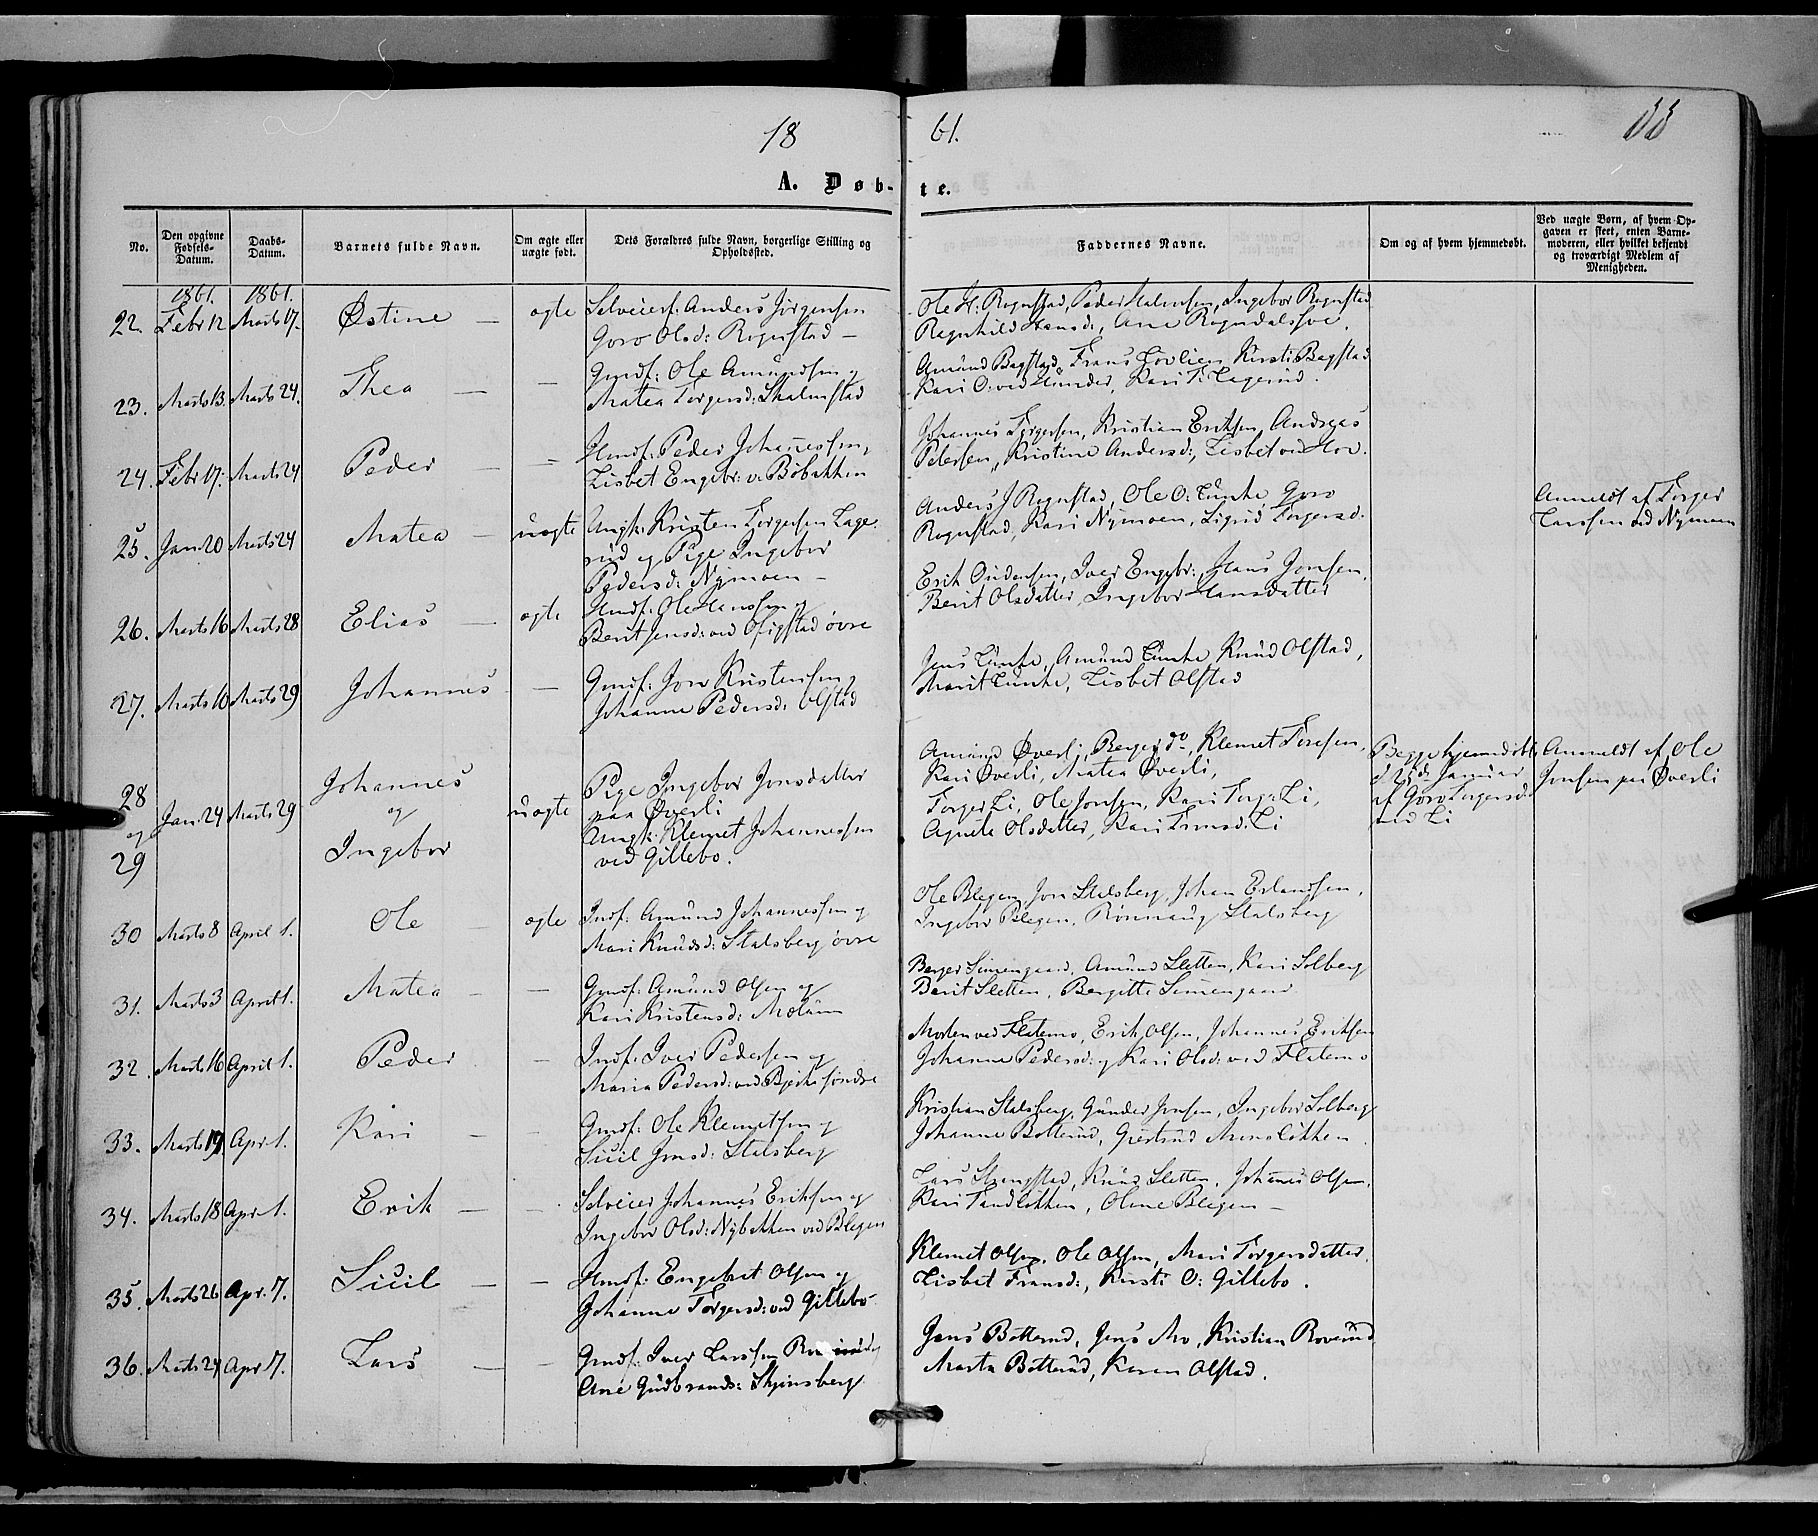 18 61. 33
A. Døb- te.
No. Den opgivne Fødsels-Datum. Daabs-Datum. Barnets fulde Navn. Om ægte eller uægte født. Dets Forældres fulde Navn, borgerlige Stilling og Opholdssted. Faddernes Navne. Om og af hvem hjemmedøbt. Ved uægte Børn, af hvem Opgaven er skeet, enten Barnemoderen, eller hvilket bekjendt og troværdigt Medlem af Menigheden.
1861. 1861.
22. Febr 12 Marts 17. Østine — ægte Selveierf: Anders Jørgensen
Goro Olsd: Rognstad —
Ole H: Rognstad, Peder Halvorsen, Ingebor Rognstad
Ragnhild Hansd:, Ane Rogndalshoe.
23. Marts 13. Marts 24. Thea — — Gmdf: Ole Amundsen og
Matea Torgersd: Skalmstad
Amund Bagstad, Frans Lovlien, Kirsti Bagstad
Kari O: ved Hunder, Kari T: Lagerud.
24. Febr 17. Marts 24 Peder — — Hmdf: Peder Johannessen,
Lisbet Engebr: v. Bøbakken
Johannes Torgersen, Kristian Eriksen, Andreas
Petersen, Kristine Andersd:, Lisbet ved Hov.
25. Jan. 20 Marts 24 Matea — uægte Ungk: Kristen Torgersen Lage-
rud og Pige Ingebor
Pedersd: Nymoen —
Anders J Rognstad, Ole O: Lunke, Goro
Rognstad, Kari Nymoen, Sigrid Torgersd:
Anmeldt af Torger
Larssen ved Nymoen
26. Marts 16 Marts 28 Elias — ægte Hmdf: Ole Hanssen og
Berit Jensd: ved Ofigstad øvre
Erik Andersen, Iver Engebr:, Hans Jonsen,
Berit Olsdatter, Ingebor Hansdatter
27. Marts 10 Marts 29 Johannes — Gmdf: Jon Kristensen og
Johanne Pedersd: Olstad
Jens Lunke, Amund Lunke, Knud Olstad,
Marit Lunke, Lisbet Olstad
28 og 29 Jan. 24 Marts 29 Johannes
og
Ingebor
uægte Pige Ingebor Jonsdatter
paa Øverli
Ungk: Klemet Johannessen
ved Gillebo.
Amund Øverli, Berger do, Klemet Toresen,
Kari Øverli, Matea Øverli,
Torger Li, Ole Jonsen, Kari Torg: Li,
Agneta Olsdatter, Kari Li
Begge hjemmedøbt
d 25de Januar
af Goro Torgersd:
ved Li
Anmeldt af Ole
Jonsen paa Øverli
30 Marts 8 April 1. Ole — ægte Indf: Amund Johannessen og
Mari Knudsd: Stalsberg øvre
Ole Blegen, Jon Stalsberg, Johan Erlandsen,
Ingebor Blegen, Rønnaug Stalsberg
31. Marts 3 April 1. Matea — — Gmdf: Amund Olsen og
Kari Kristensd: Moløum
Berger Simengaard, Amund Sletten, Kari Solberg
Berit Sletten, Bergitte Simengaard
32. Marts 16 April 1. Peder — Indf: Iver Pedersen og
Maria Pedersd: ved Bjerke søndre
Morten ved Flatemo, Erik Olsen, Johannes Eriksen
Johanne Pedersd: og Kari Olsd: ved Flatemo
33. Marts 19 Apr. 1. Kari — — Gmdf: Ole Klemetsen og
Sicil Jonsd: Stalsberg
Kristian Stalsberg, Gunder Jonsen, Ingebor Solberg
Johanne Botterud, Gertrud Moenløkken
34. Marts 18 Apr. 1. Erik — — Selveier Johannes Eriksen og
Ingebor Olsd: Nybakken ved Blegen
Lars Skongstad, Knud Sletten, Johannes Olsen,
Kari Sandløkken, Oline Blegen —
35. Marts 26 Apr. 7. Sicil — — Hmdf: Engebret Olsen og
Johanne Torgersd: ved Gillebo
Klemet Olsen, Ole Olsen, Mari Torgersdatter,
Lisbet Fransd:, Kirsti O: Gillebo.
36. Marts 24 Apr 7. Lars — — Gmdf: Iver Larssen og
Ane Gudbrands: Skjønsberg
Jens Botterud, Jens Mo, Kristian Roverud
Marta Botterud, Karen Olstad.